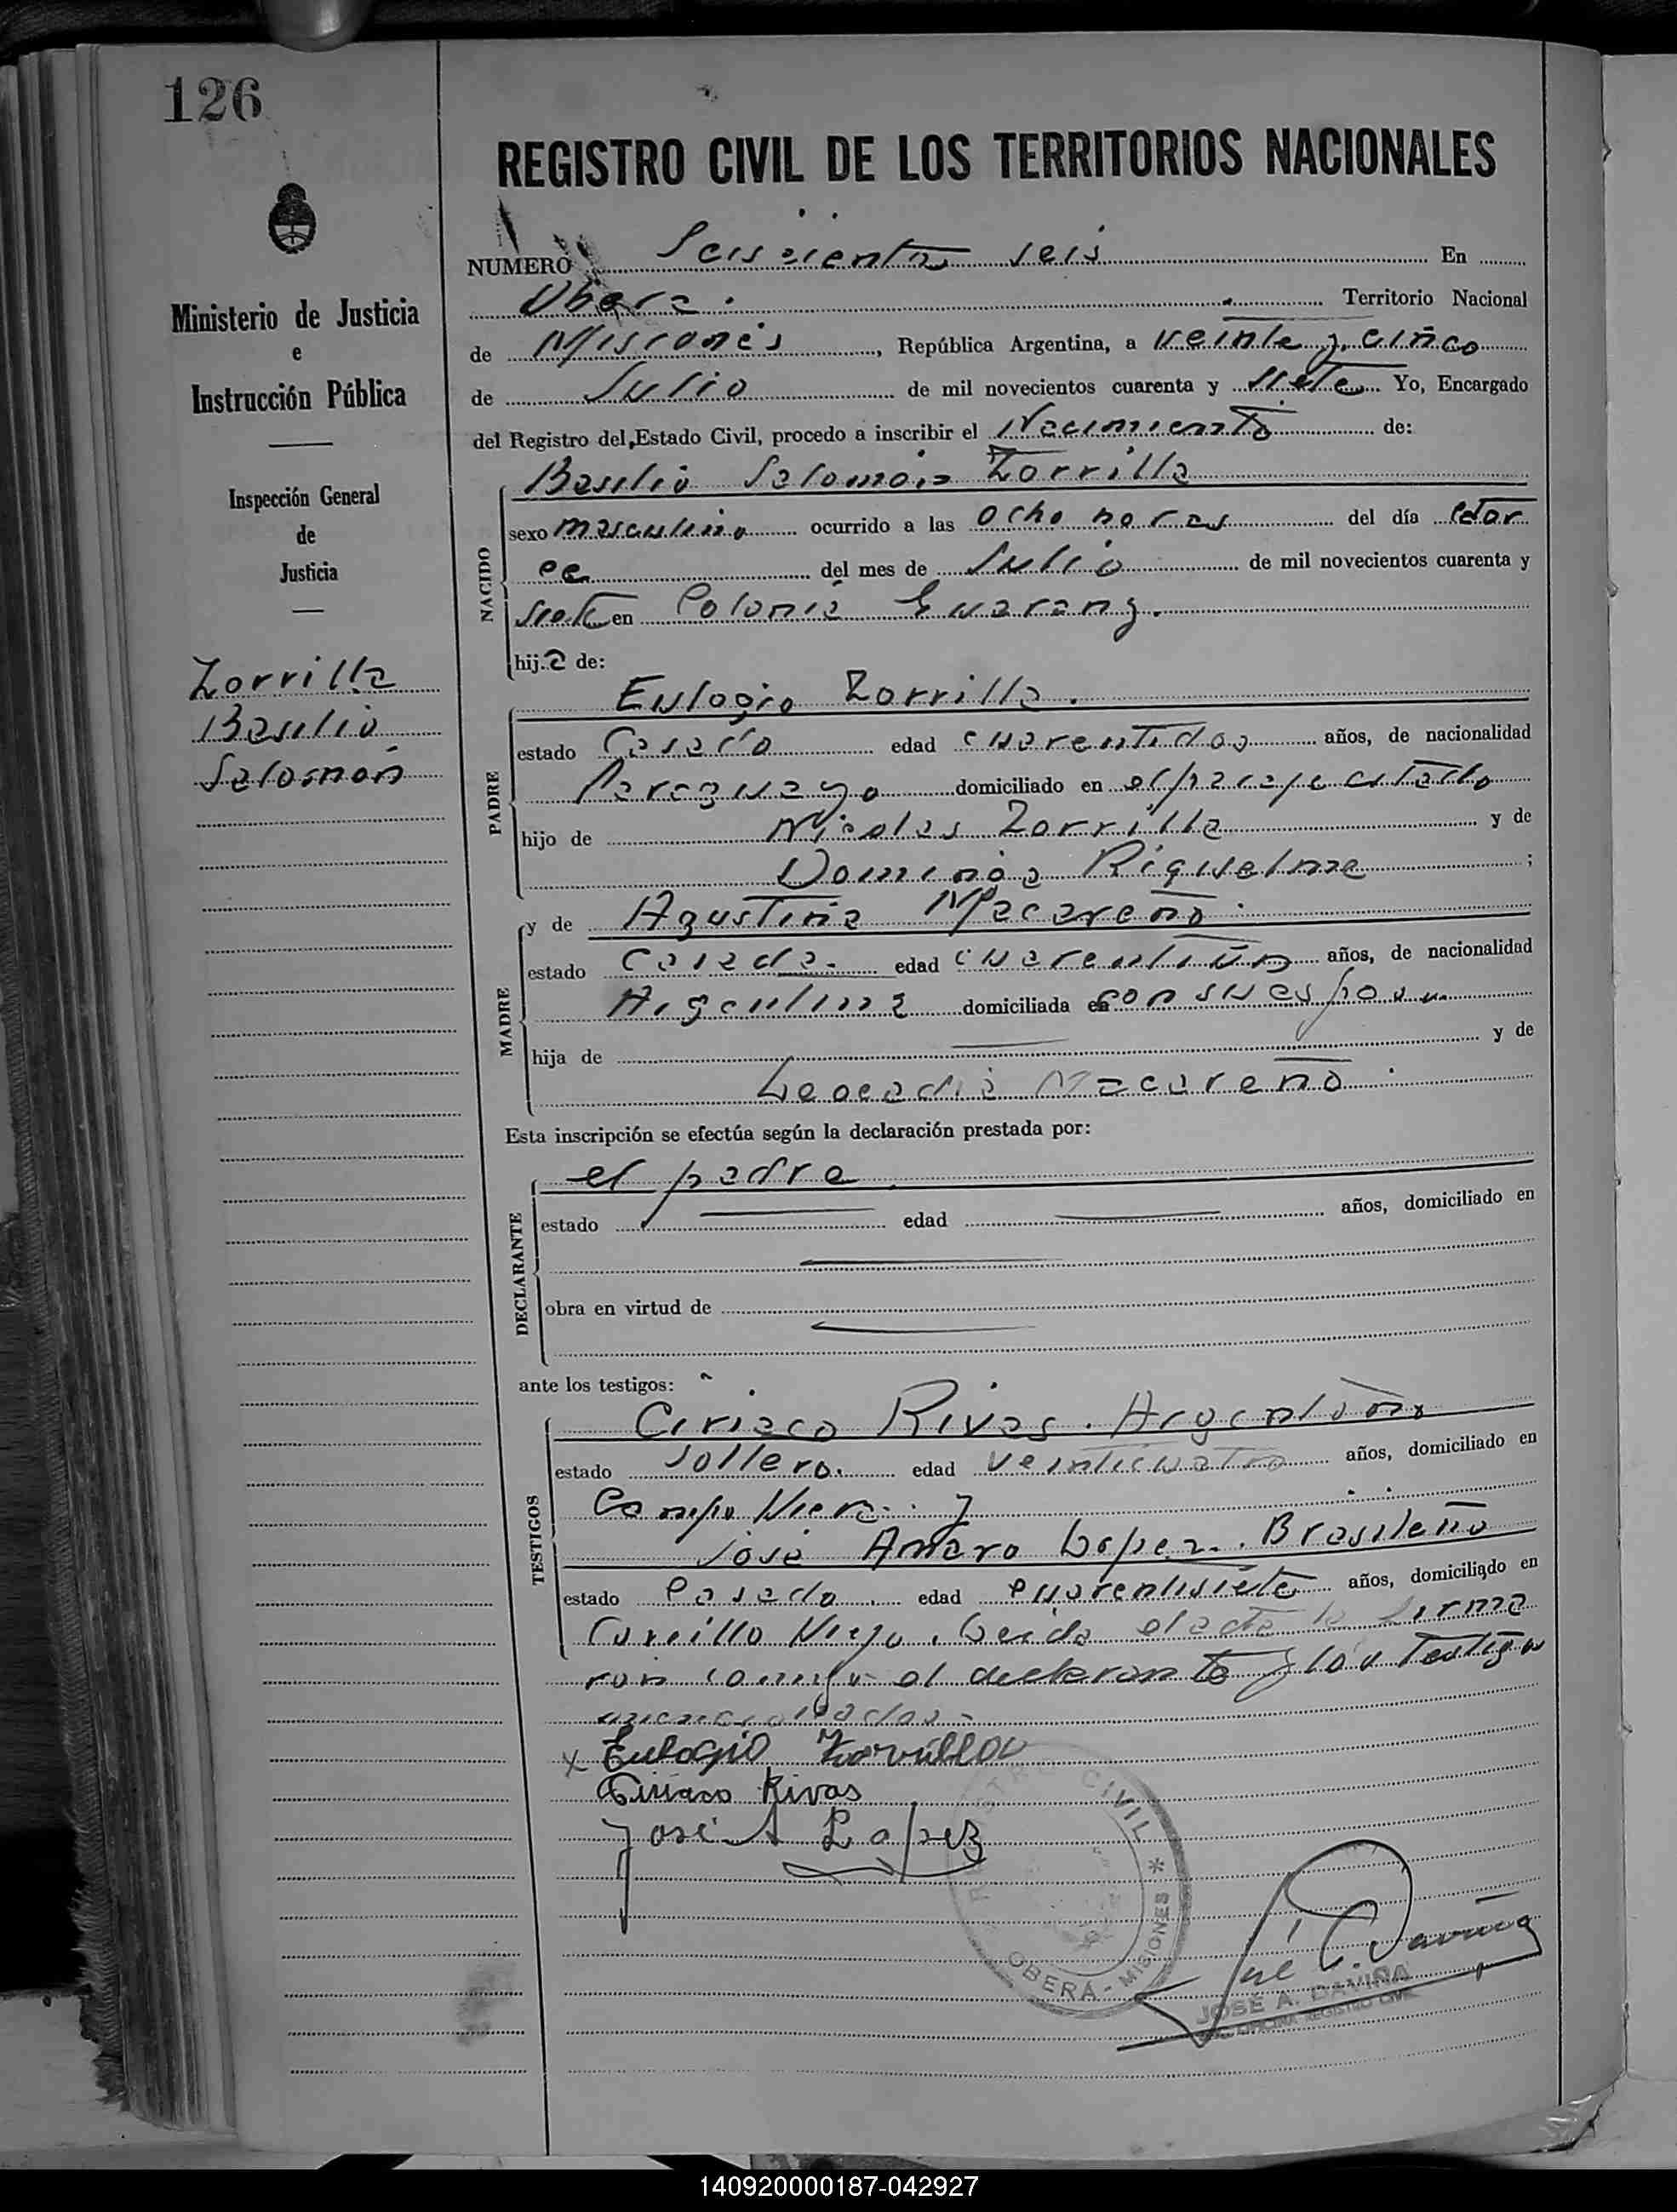 126
REGISTRO CIVIL DE LOS TERRITORIOS NACIONALES
Ministerio de Justicia
e
Instrucción Pública
Inspección General
de
Justicia
Zorrilla
Basilio
Salomón
NUMERO Seiscientos seis En
Obera. Territorio Nacional
de Misiones, República Argentina, a veinte y cinco
de Julio de mil novecientos cuarenta y siete Yo, Encargado
del Registro del Estado Civil, procedo a inscribir el Nacimiento de:
NACIDO
Basilio Salomón Zorrilla
sexo masculino ocurrido a las ocho horas del día cator
ce del mes de Julio de mil novecientos cuarenta y
siete en Colonia Guarany.
hij o de:
PADRE
Eulogio Zorrilla.
estado Casado edad cuarentidos años, de nacionalidad
Paraguayo domiciliado en el paraje citado
hijo de Nicolas Zorrilla y de
Dominga Riquelme ;
MADRE
y de Agustina Macareño.
estado Casada. edad cuarentiun años, de nacionalidad
Argentina domiciliada en con su esposo.
hija de y de
Leocadia Macareño.
Esta inscripción se efectúa según la declaración prestada por:
DECLARANTE
el padre.
estado edad años, domiciliado en
obra en virtud de
ante los testigos:
TESTIGOS
Ciriaco Rivas. Argentino
estado Soltero. edad veinticuatro años, domiciliado en
Campo Viera. y
José Amaro Lopez. Brasileño
estado Casado. edad cuarentisiete años, domiciliado en
Leida el acta la firma
ron conmigo el declarante y los testigos
mencionados-
x Eulogio Zorrilla
Ciriaco Rivas
José A Lopez
REGISTRO CIVIL * OBERÁ - MISIONES
José A. Daviña
JOSÉ A. DAVIÑA
OFICINA REGISTRO CIVIL
140920000187-042927